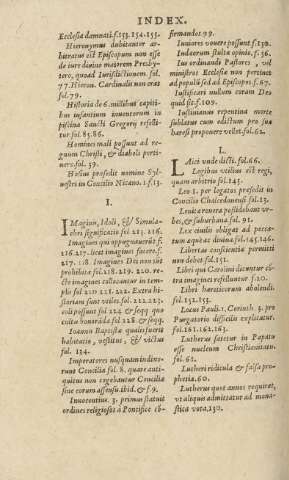 INDEX.
Ecclesia damnati. f.153.154.155.
Hieronymus dubitanter ar-
bitratus est Episcopum non esse
de iure diuino maiorem Presby-
tero, quoad Iurisdictionem. fol.
77. Hieron. Cardinalis non erat
fol. 79.
Historia de 6. millibus capiti-
bus infantium inuentorum in
piscina Sancti Gregorij refelli-
tur fol. 85.86.
Homines mali possunt ad re-
gnum Christi, & diaboli perti-
nere f. 59.
Hosius præsedit nomine Syl-
uestri in Concilio Nicæno. f. 13.
I.
IMagines, Idoli, & Simula-
chri significatio fol 215. 216.
Imagines qui oppugnauerint f.
216.217. licet imagines facere f.
217. 218. Imagines Dei non sint
prohibitæ fol. 218. 219. 220. re-
ctè imagines collocantur in tem-
plo fol 220 221. 222. Extra hi-
storiam sunt vtiles. fol. 222.223.
coli possunt fol 224 & seqq quo
cultu honoranda fol 228 & seqq.
Ioannis Baptistæ qualis fuerit
habitatio, vestitus, & victus
fol. 134.
Imperatores nusquam indixe-
runt Concilia fol. 8. quare anti-
quitus non cogebantur Concilia
sine eorum assensu. ibid. & f. 9.
Innocentius. 3. primus statuit
ordines religiosos à Pontifice cō-
firmandos 99.
Iuniores vouere possunt f. 130.
Indæorum stulta opinio, f. 56.
Ius ordinandi Pastores, vel
ministros Ecclesiæ non pertinet
ad populū sed ad Episcopos f. 67.
Iustificati nullum coram Deo
quid sit f. 109.
Iustinianus repentina morte
sublatus cum edictum pro sua
hæresi proponere vellet. fol. 62.
L.
LAici vnde dicti. fol. 66.
Legibus vtilius est regi,
quam arbitrio fol. 145.
Leo 1. per legatos præsedit in
Concilio Chalcedonensi fol. 13.
Leuitæ renera possidebant vr-
bes, & suburbana fol. 91.
Lex ciuilis obligat ad pecca-
tum æquè ac diuina. fol. 145. 146.
Libertas conscientiæ permitti
non debet fol. 151.
Libri qui Carolini dicuntur cō-
tra imagines refelluntur f. 220.
Libri hæreticorum abolendi.
fol. 152. 153.
Locus Pauli 1. Corinth. 3. pro
Purgatorio difficilis explicatur.
fol. 161. 162. 163.
Lutherus fatetur in Papatu
esse nucleum Christianitatis.
fol. 62.
Lutheri ridicula & falsa pro-
phetia. 60.
Lutherus quot annos requirat,
vt aliquis admittatur ad mona-
stica vota, 130.